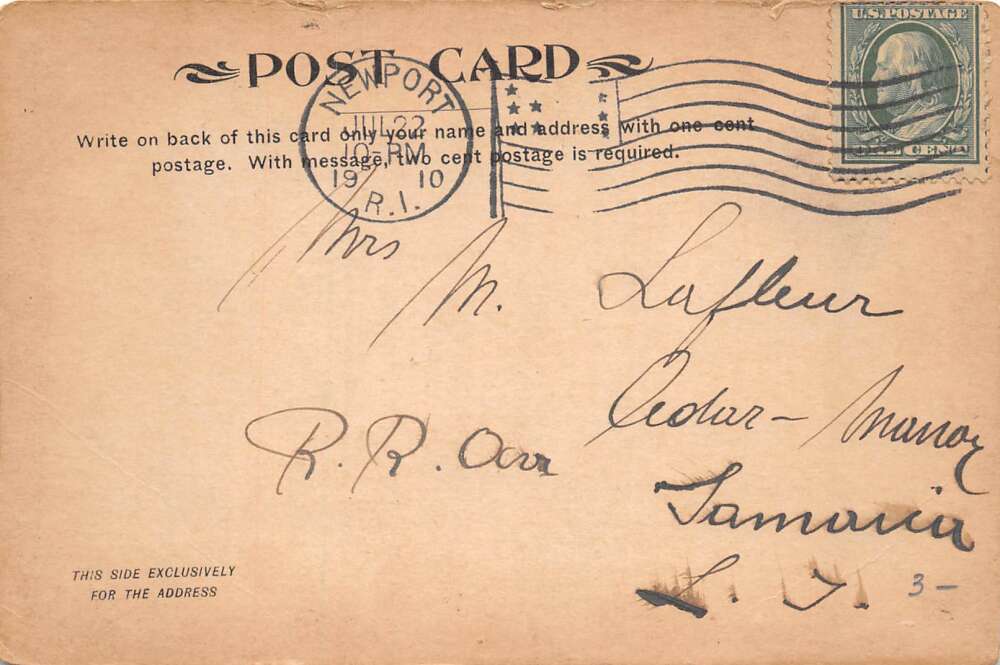 POST CARD
U.S. POSTAGE
NEWPORT
JUL 22
10-PM
19 10
R.I.
Write on back of this card only your name and address with one cent
postage. With message, two cent postage is required.
Mrs M. Lafleur
Cedar-Manor
R.R. Ave
Jamaica
L. I.
3-
THIS SIDE EXCLUSIVELY
FOR THE ADDRESS